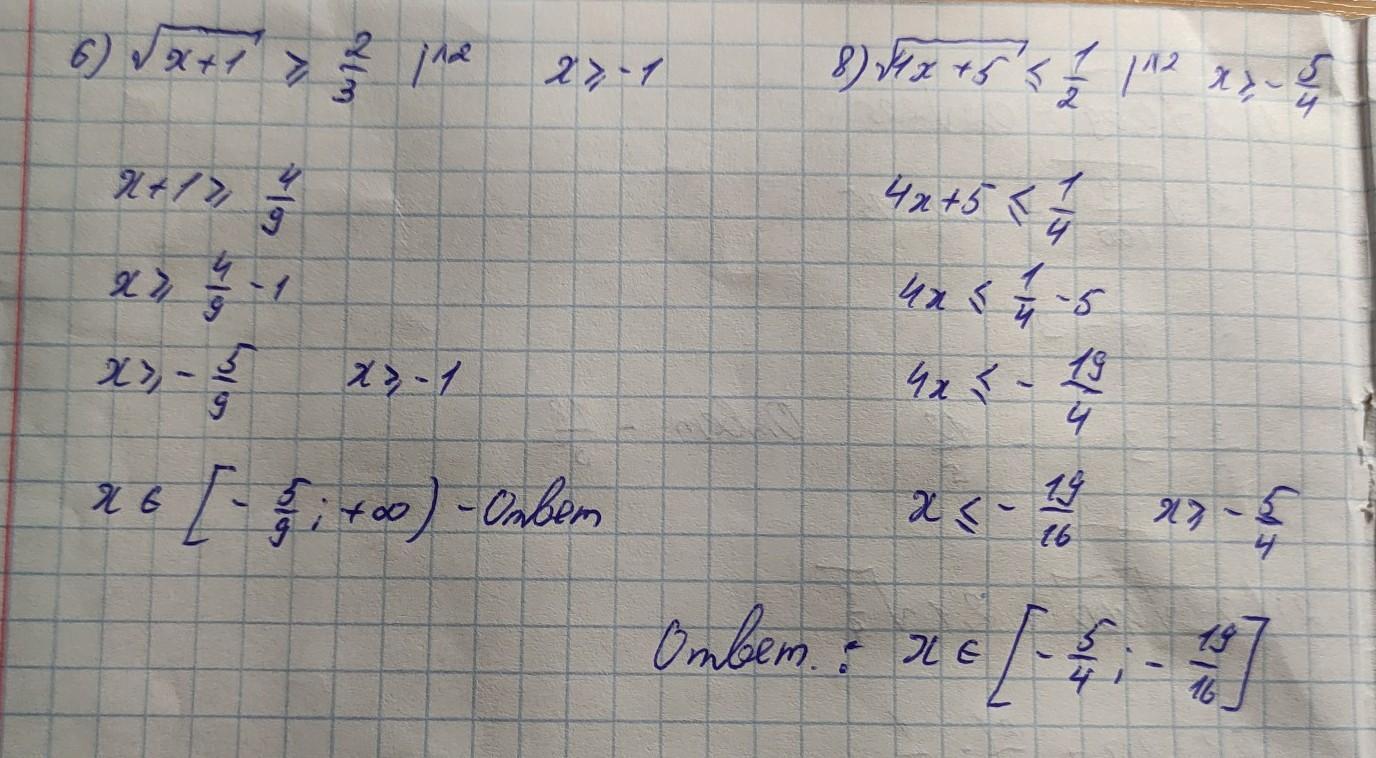 6) √(x+1) ⩾ 2/3 |^2 x ⩾ -1
x+1 ⩾ 4/9
x ⩾ 4/9 - 1
x ⩾ - 5/9 x ⩾ -1
x ∈ [- 5/9; +∞) - Ответ
8) √(4x+5) ⩽ 1/2 |^2 x ⩾ - 5/4
4x+5 ⩽ 1/4
4x ⩽ 1/4 - 5
4x ⩽ - 19/4
x ⩽ - 19/16 x ⩾ - 5/4
Ответ. : x ∈ [- 5/4; - 19/16]